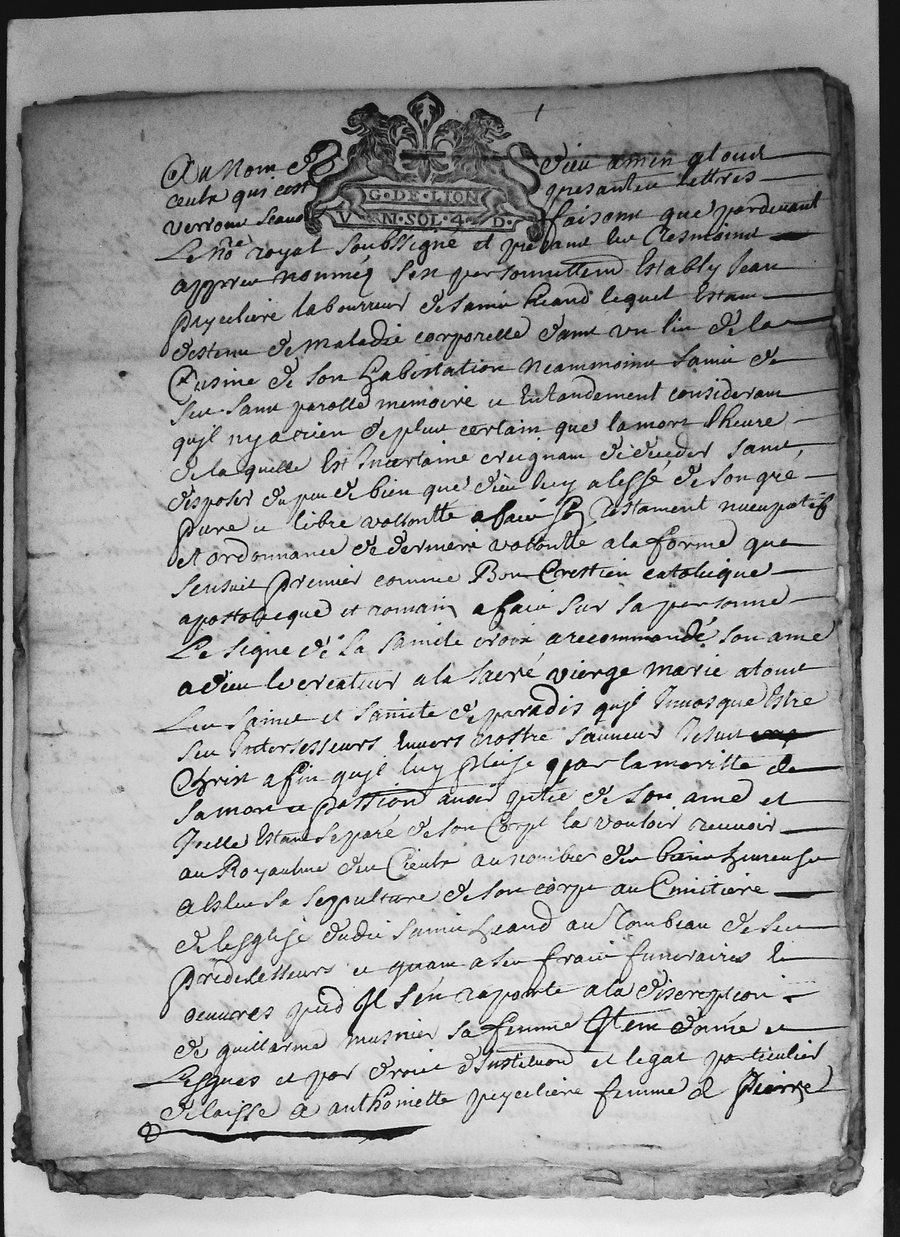 G · DE · LION
V N · SOL · 4 D ·
Au Nom de Dieu amen a tous
ceulx qui ces presantes lettres
verront scavoir faisons que pardevant
Le nore royal soubssigné et presant les tesmoins
appres nommés s'en personnellemt Estably Jean
Peyceliere labourreur de Sainct heand lequel Estant
destenu de maladie corporelle dans un lic de la
Cuisine de son habistation neammoins sains de
ses sans parolle memoire et Entandement considerant
quyl ny a rien de plus certain que la mort lheure
de la quelle Est Incertaine creignant de deceder sans
disposer du peu de bien que dieu luy a lessé de son gré
pure et libre vollontte a faict so Testament nuncupatif
et ordonnance de derniere vollontte a la forme que
sensuit Premier comme Bon Crestien catolicque
apostolicque et romain a faict sur sa personne
Le signe de la sainte croix a recommandé son ame
a dieu le createur a la sacré vierge marie a tous
Les saincts et saincte de paradis quyl Invosque Estre
ses Intersesseurs Envers nostre sauveur Jesus
Christ afin quyl luy Pleise par la meritte de
sa mort et passion avoir pitié de son ame et
Icelle Estant separé de son Corps la vouloir recevoir
au Royaulme des Cieulx au nombre des bien heureux
a Esleu sa sepulture de son corps au Cimitiere
de lesglise dudict Sainct heand au Tombeau de ses
Predecesseurs et quant a ses fraix funeraires et
oeuvres pies Il s'en raporte a la discreption
de guillarme musnier sa femme Item donne et
Legues et par droit dInstitution et legat particulier
delaisse a anthoinette peyceliere femme de Pierre